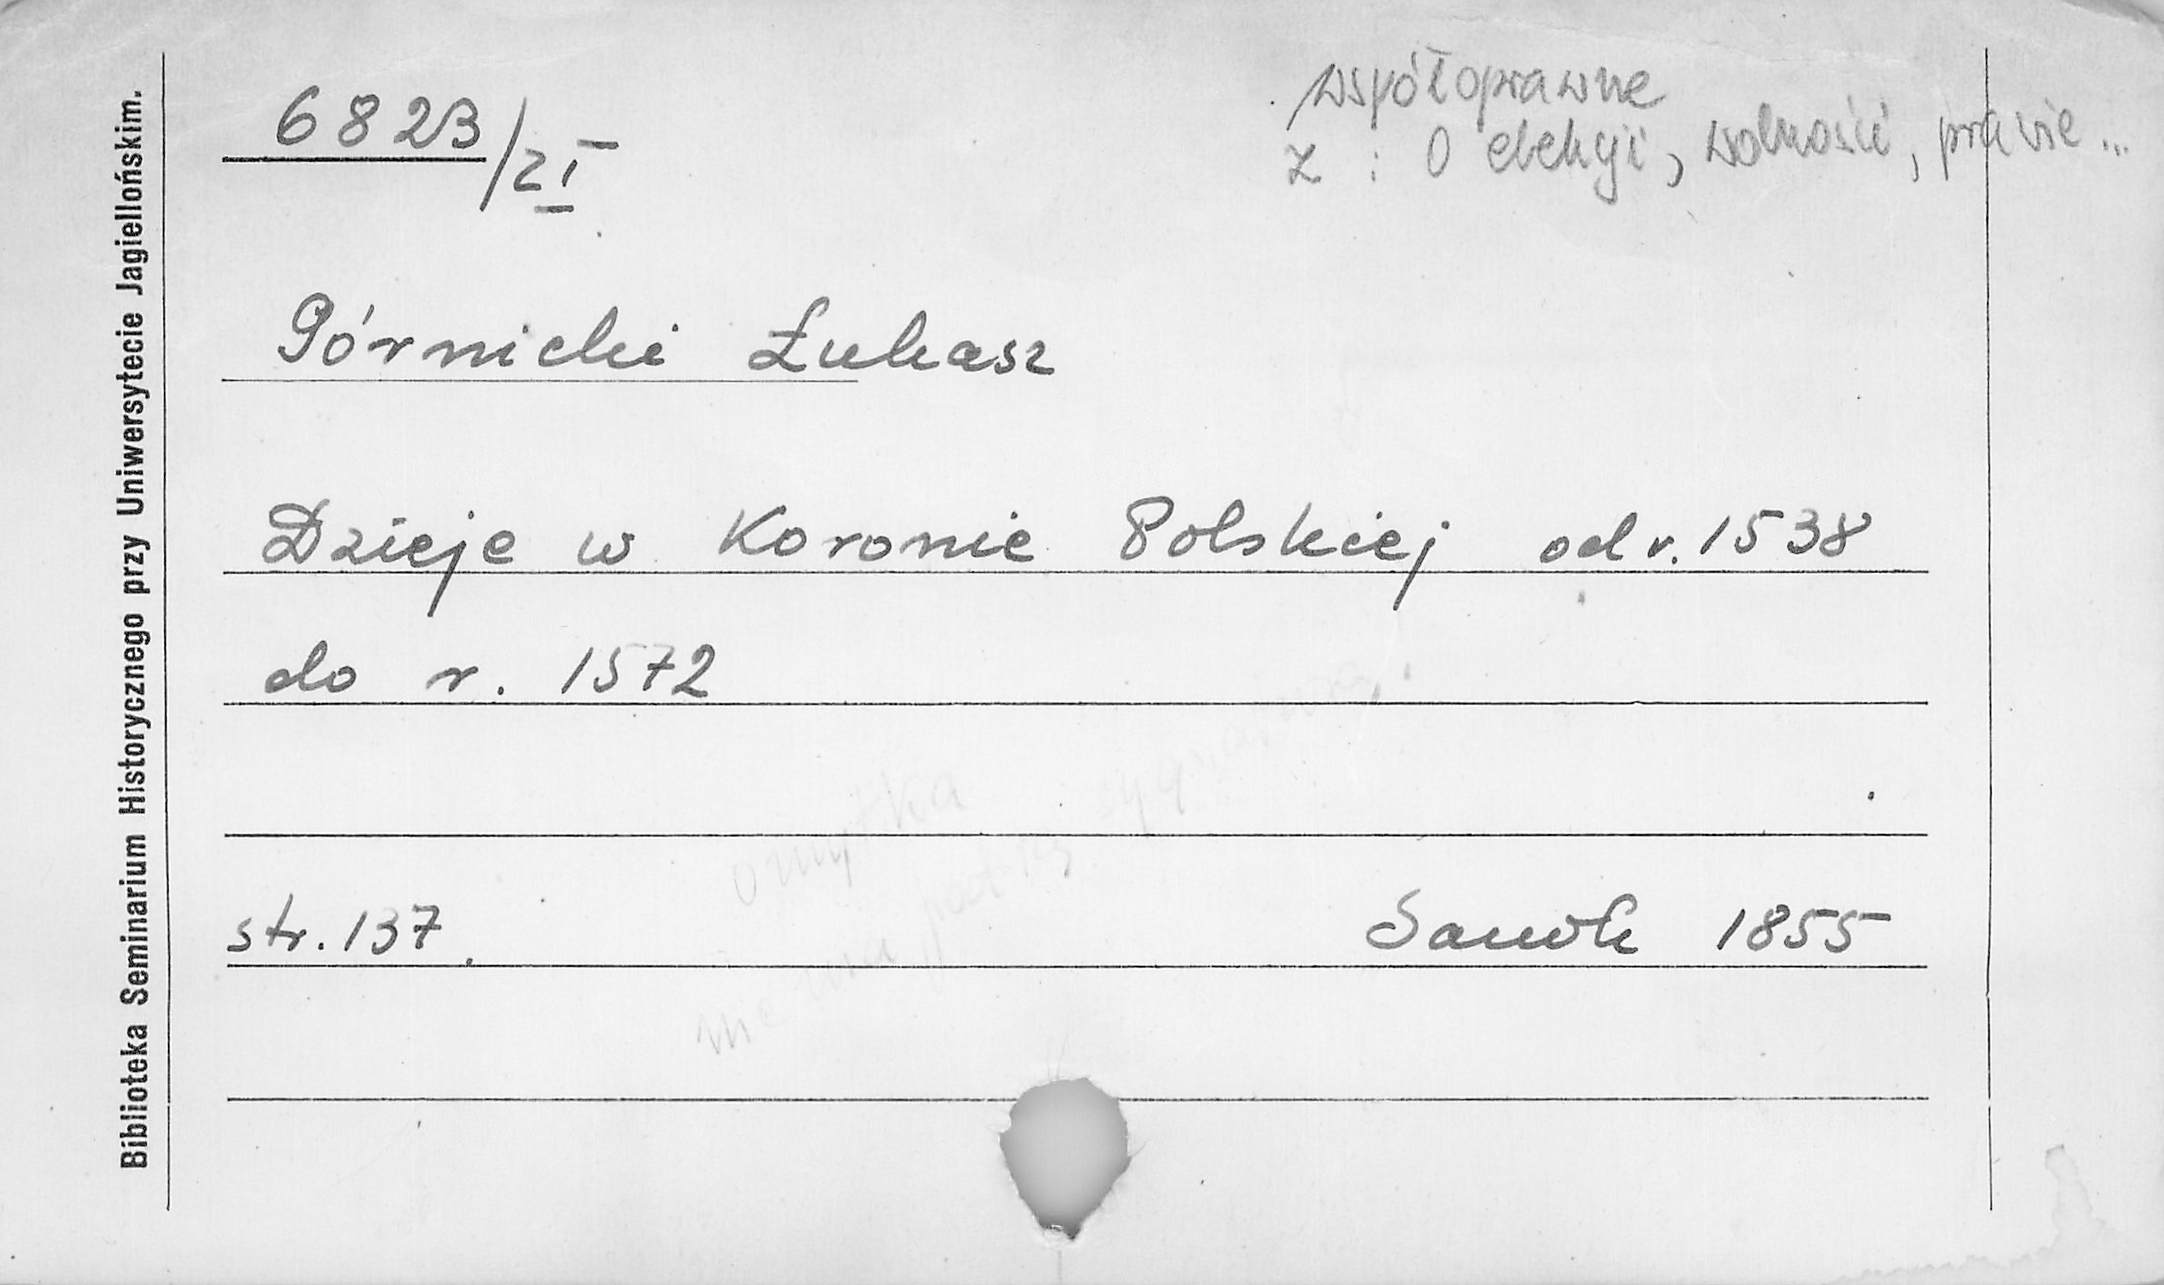 6823/2I
współoprawne
z : O elekcji, wolności, prawie...
Górnicki Łukasz
Dzieje w Koronie Polskiej od r. 1538
do r. 1572
omyłka
str. 137. Sanok 1855
Biblioteka Seminarium Historycznego przy Uniwersytecie Jagiellońskim.